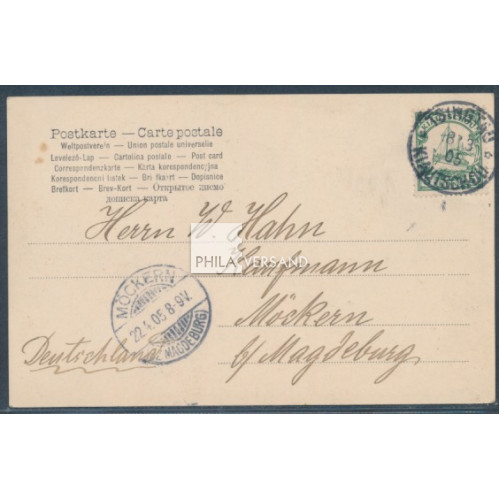 Postkarte — Carte postale
Weltpostverein — Union postale universelle
Levelező-Lap — Cartolina postale — Post card
Correspondenzkarte — Karta korespondencyjna
Korespondenční lístek — Brefkaart — Dopisnice
Brefkort — Brev-Kort — Открытое письмо
дописна карта
TSINGTAU
18 3
05
KIAUTSCHOU
Herrn W. Hahn
PHILA VERSAND
Kaufmann
MÖCKERN
22.4.05 8-9V.
(BZ. MAGDEBURG)
Möckern
b/Magdeburg
Deutschland